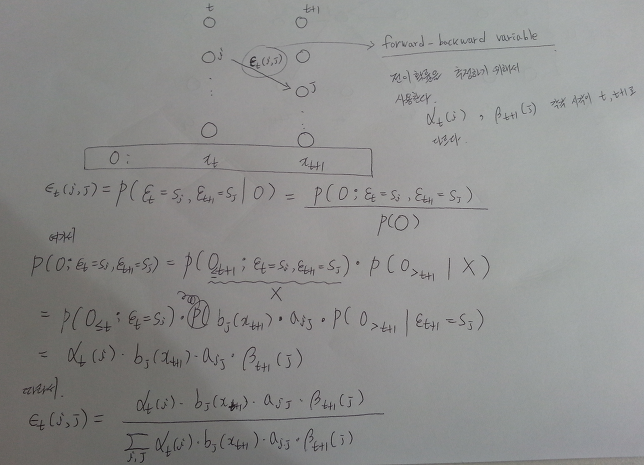 t t+1
i ε_t(i,j) → forward-backward variable
전이 확률을 측정하기 위해서
사용한다.
j
α_t(i) , β_{t+1}(j) 각각 시각이 t, t+1로
다르다.
O: x_t x_{t+1}
ε_t(i,j) = P(ε_t = S_i, ε_{t+1} = S_j | O) = P(O; ε_t = S_i, ε_{t+1} = S_j) / P(O)
여기서
P(O; ε_t=S_i, ε_{t+1}=S_j) = P(O_{≤t+1}; ε_t=S_i, ε_{t+1}=S_j) · P(O_{>t+1} | X)
X
= P(O_{≤t}; ε_t=S_i) · b_j(x_{t+1}) · a_{ij} · P(O_{>t+1} | ε_{t+1}=S_j)
= α_t(i) · b_j(x_{t+1}) · a_{ij} · β_{t+1}(j)
따라서.
ε_t(i,j) = α_t(i) · b_j(x_{t+1}) · a_{ij} · β_{t+1}(j) / Σ_{i,j} α_t(i) · b_j(x_{t+1}) · a_{ij} · β_{t+1}(j)